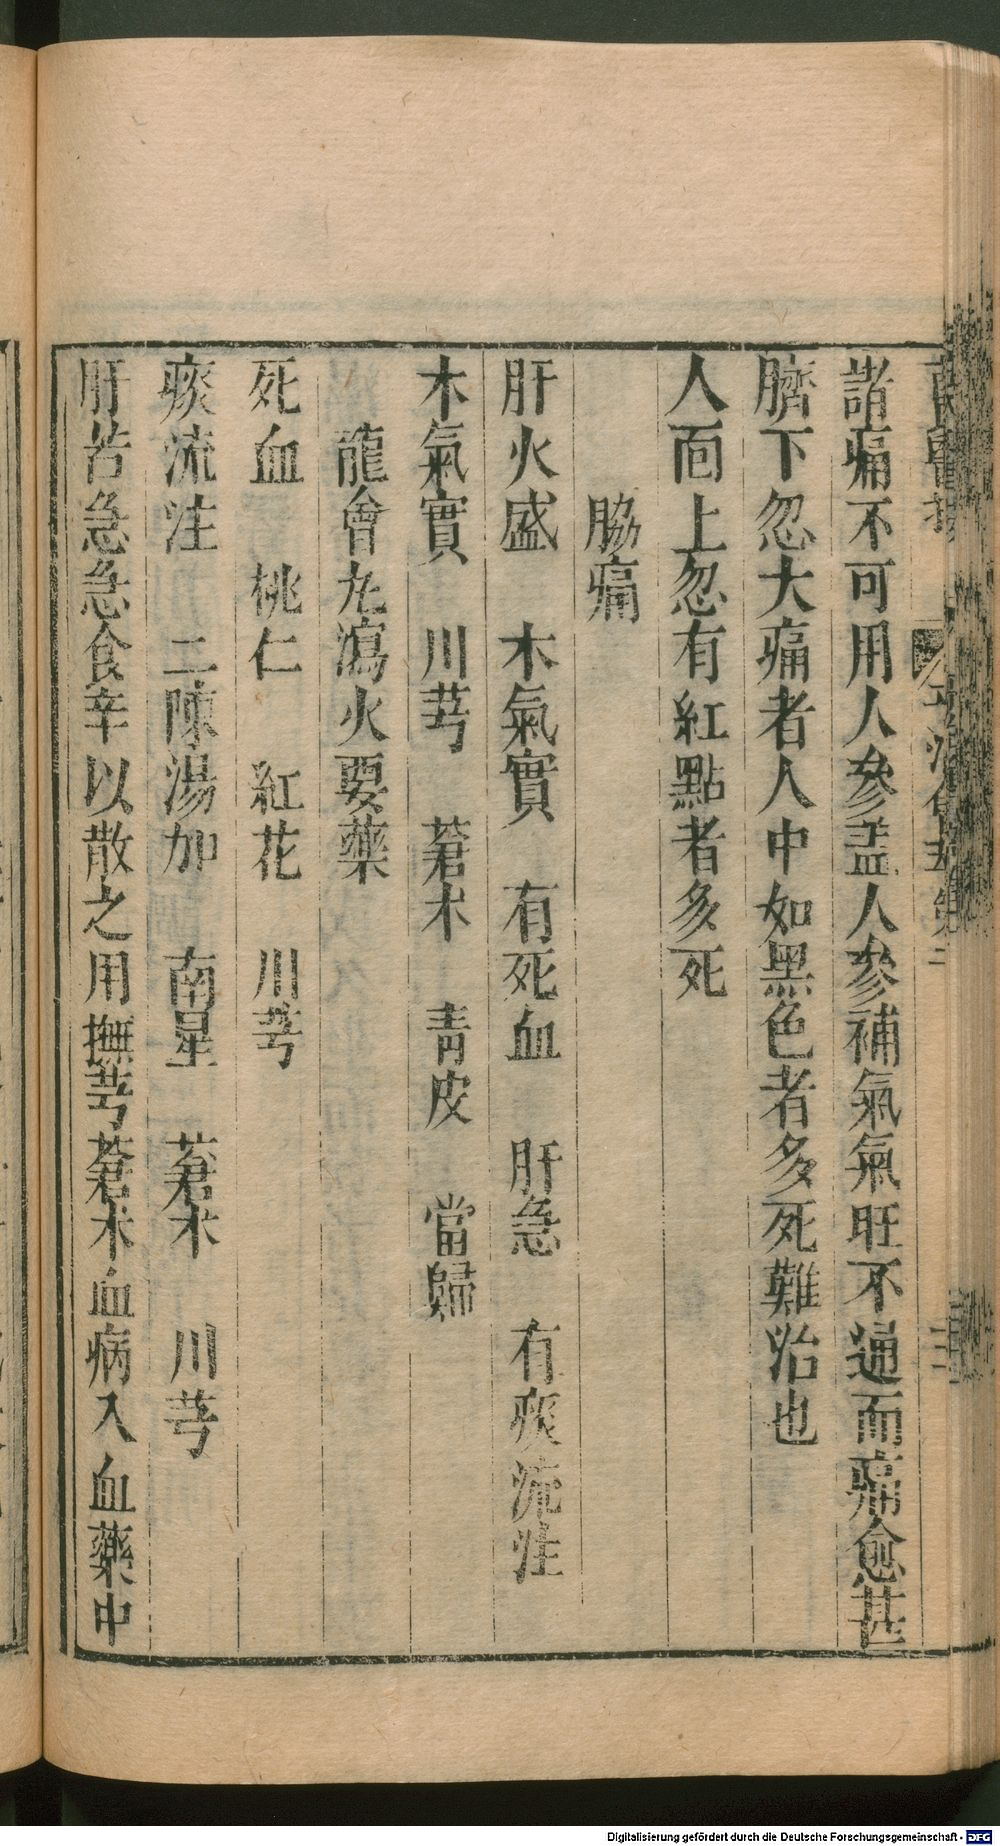 諸痛不可用人參盖人參補氣氣旺不通而痛愈甚
臍下忽大痛者人中如黑色者多死難治也
人面上忽有紅點者多死
脇痛
肝火盛　木氣實　有死血　肝急　有痰流注
木氣實　川芎　蒼术　青皮　當歸
龍會丸瀉火要藥
死血　桃仁　紅花　川芎
痰流注　二陳湯加　南星　蒼术　川芎
肝苦急急食辛以散之用撫芎蒼术血病入血藥中
Digitalisierung gefördert durch die Deutsche Forschungsgemeinschaft - DFG